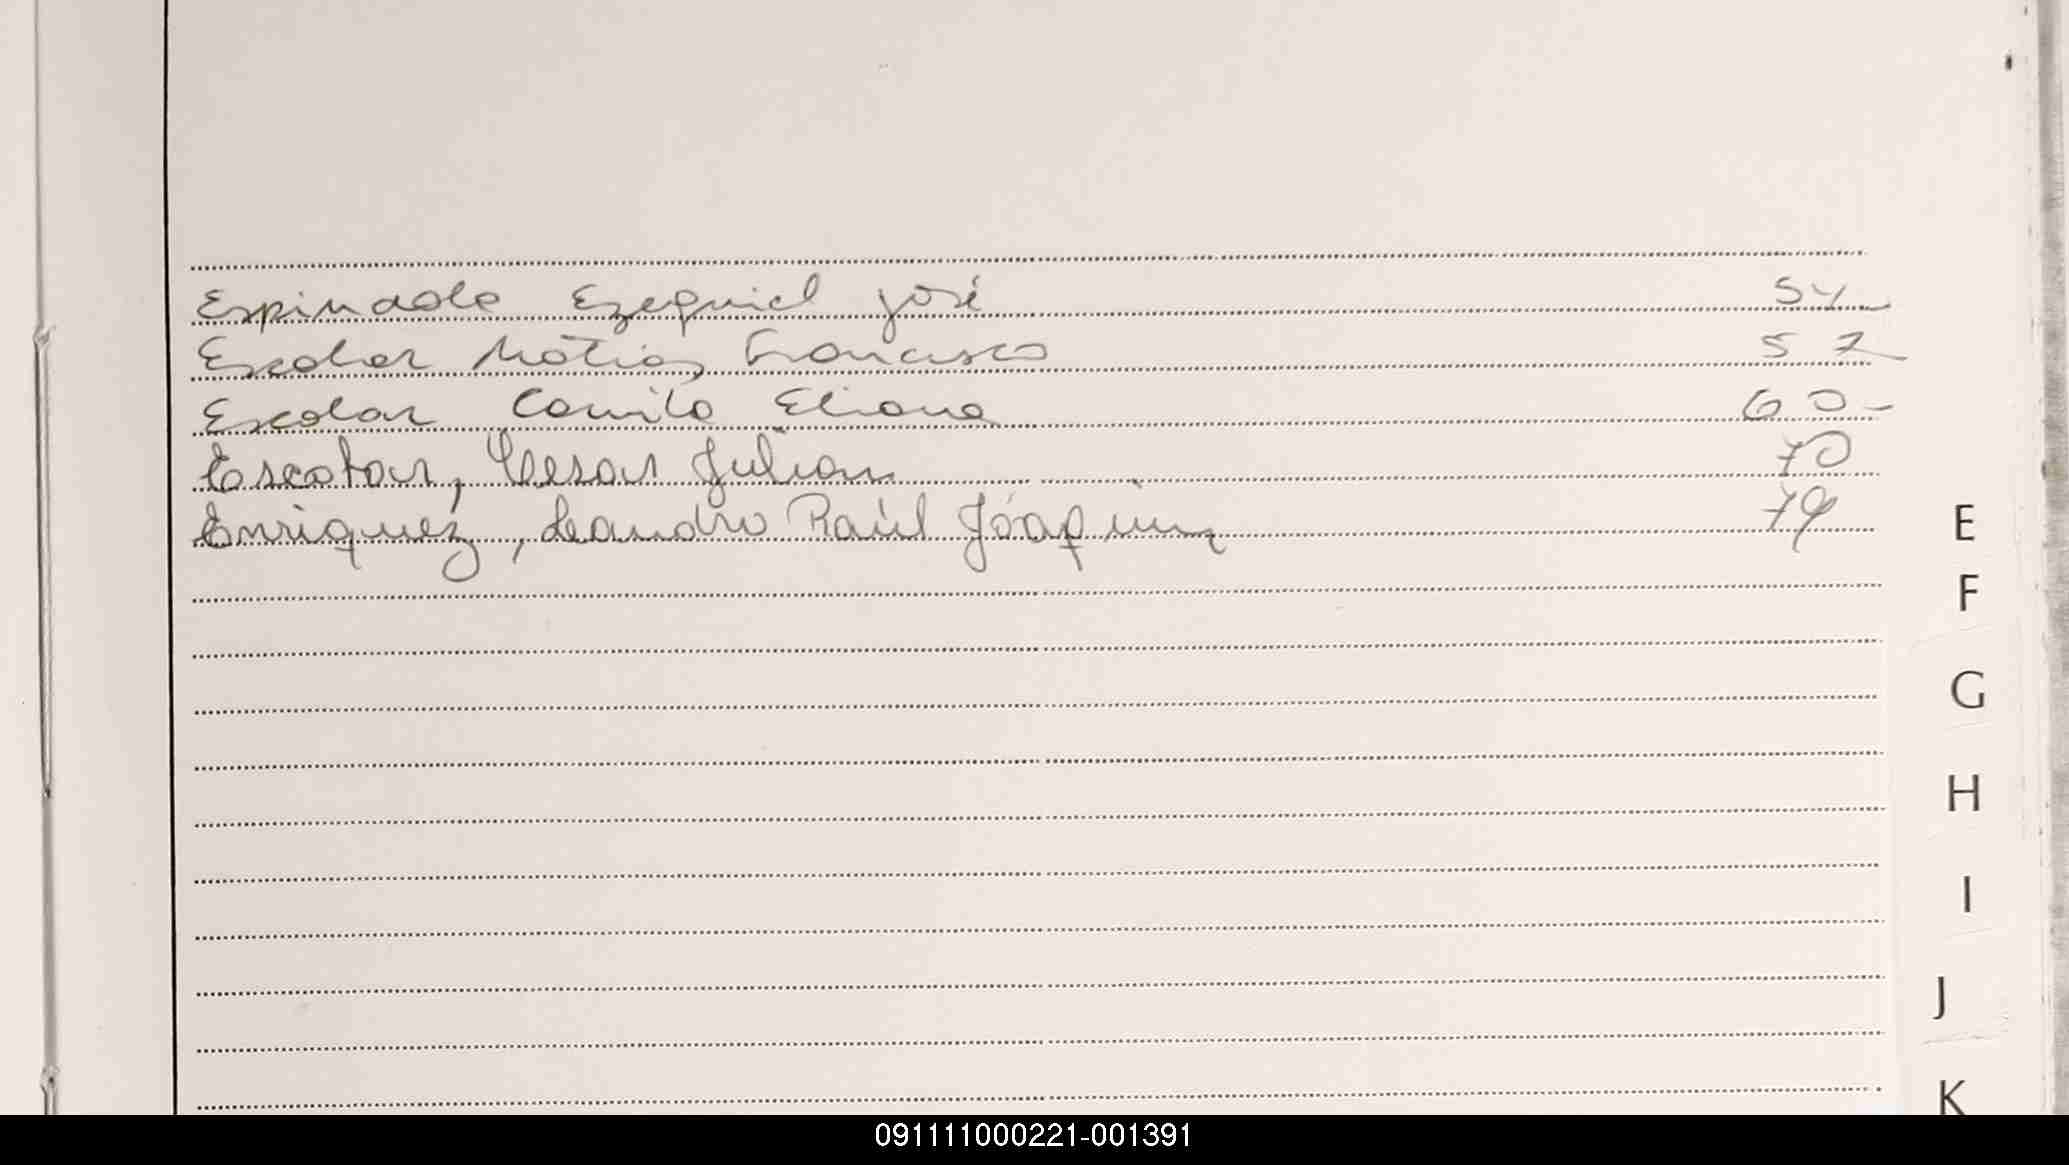 Espindola Ezequiel José 54
Escobar Matias Francisco 57
Escobar Camila Eliana 60
Escobar, Cesar Julian 70
Enriquez, Leandro Raúl Jóaquin 79
E
F
G
H
I
J
K
091111000221-001391